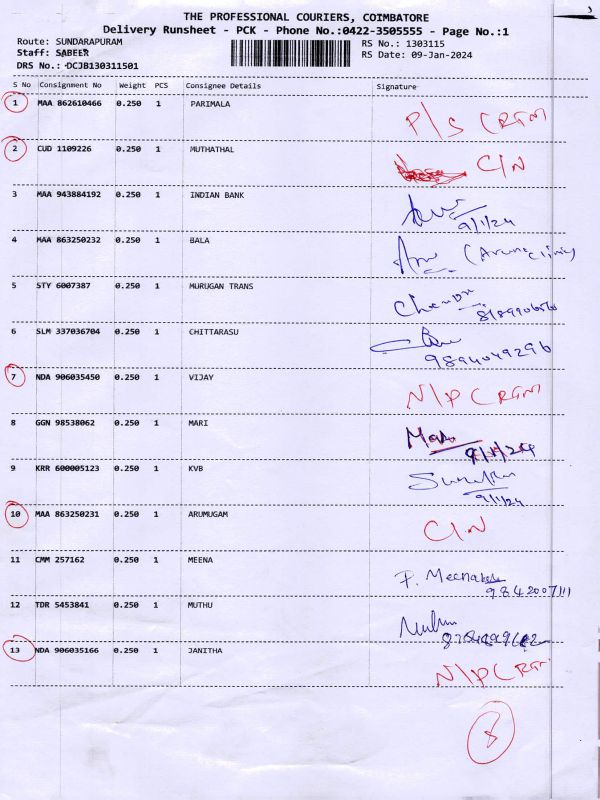 THE PROFESSIONAL COURIERS, COIMBATORE
Delivery Runsheet - PCK - Phone No.:0422-3505555 - Page No.:1
Route: SUNDARAPURAM
RS No.: 1303115
Staff: SABEER
RS Date: 09-Jan-2024
DRS No.: DCJB130311501
S No Consignment No Weight PCS Consignee Details Signature
1 MAA 862610466 0.250 1 PARIMALA P/S CRTM
2 CUD 1109226 0.250 1 MUTHATHAL C/N
3 MAA 943884192 0.250 1 INDIAN BANK
9/1/24
4 MAA 863250232 0.250 1 BALA
5 STY 6007387 0.250 1 MURUGAN TRANS
6 SLM 337036704 0.250 1 CHITTARASU
9894049296
7 NDA 906035450 0.250 1 VIJAY N/P CRTM
8 GGN 98538062 0.250 1 MARI
9/1/24
9 KRR 600005123 0.250 1 KVB
9/1/24
10 MAA 863250231 0.250 1 ARUMUGAM C/N
11 CMM 257162 0.250 1 MEENA
12 TDR 5453841 0.250 1 MUTHU
13 NDA 906035166 0.250 1 JANITHA N/P CRTM
8